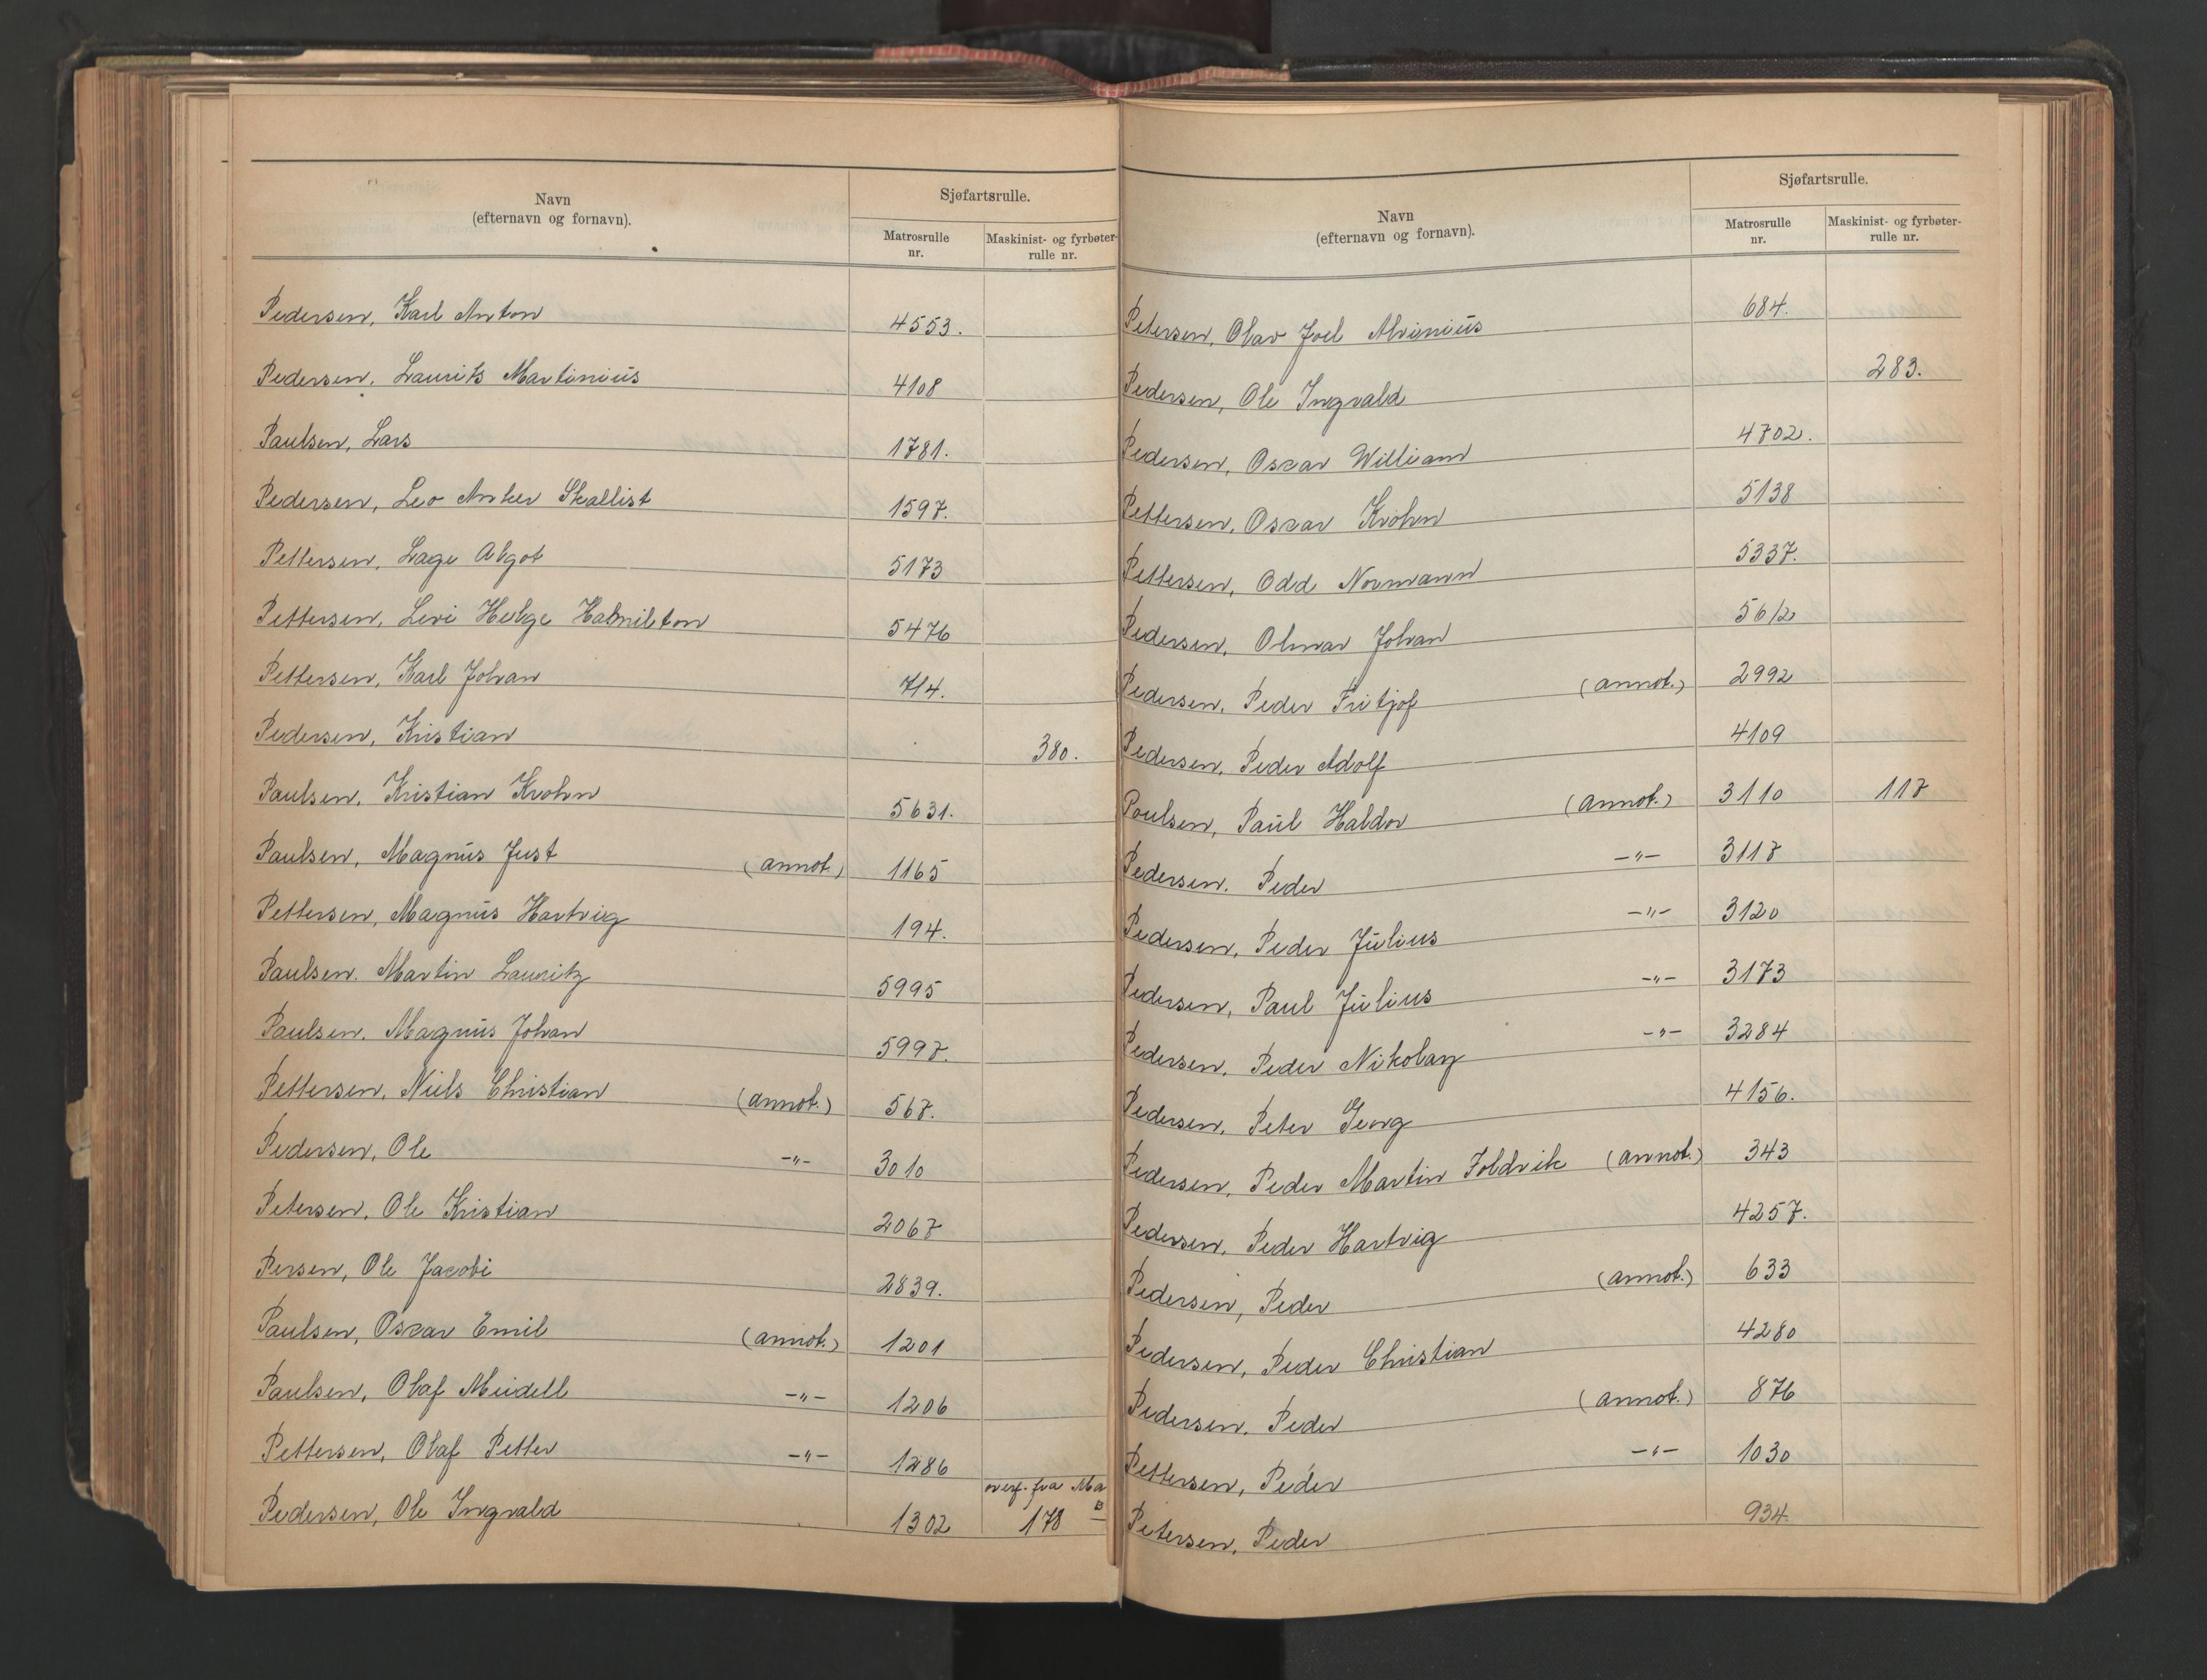 Navn
(efternavn og fornavn).
Sjøfartsrulle.
Matrosrulle
nr.
Maskinist- og fyrbøter-
rulle nr.
Pedersen, Karl Anton 4553.
Pedersen, Laurits Martinius 4108
Paulsen, Lars 1781.
Pedersen, Leo Anker Skallist 1597.
Pettersen, Lage Algot 5173
Pettersen, Levi Helge Halmilton 5476
Pettersen, Karl Johan 714.
Pedersen, Kristian 380.
Paulsen, Kristian Krohn 5631.
Paulsen, Magnus Just (annot.) 1165
Pettersen, Magnus Hartvig 194.
Paulsen. Martin Lauritz 5995
Paulsen, Magnus Johan 5997.
Pettersen, Niels Christian (annot.) 567.
Pedersen, Ole -"- 3010
Petersen, Ole Kristian 2067
Persen, Ole Jacobi 2839.
Paulsen, Oscar Emil (annot.) 1201
Paulsen, Olaf Meidell -"- 1206
Pettersen, Olaf Petter -"- 1286
overf. fra Ma
Pedersen, Ole Ingvald 1302 178
Navn
(efternavn og fornavn).
Sjøfartsrulle.
Matrosrulle
nr.
Maskinist- og fyrbøter-
rulle nr.
Petersen, Olav Joel Alvinius 684.
Pedersen, Ole Ingvald 283.
Pedersen, Oscar William 4702.
Pettersen, Oscar Krohn 5138
Pettersen, Odd Normann 5337.
Pedersen, Olmar Johan 5612
Pedersen, Peder Fritjof (annot.) 2992
Pedersen, Peder Adolf 4109
Poulsen, Paul Haldor (annot.) 3110 117
Pedersen. Peder -"- 3117
Pedersen, Peder Julius -"- 3120
Pedersen, Paul Julius -"- 3173
Pedersen, Peder Nikolay -"- 3284
Pedersen, Peter Georg 4156.
Pedersen, Peder Martin Foldvik (annot.) 343
Pedersen, Peder Hartvig 4257.
Pedersen, Peder (annot.) 633
Pedersen, Peder Christian 4280
Pedersen, Peder (annot.) 876
Pettersen, Peder -"- 1030
Petersen, Peder 934.